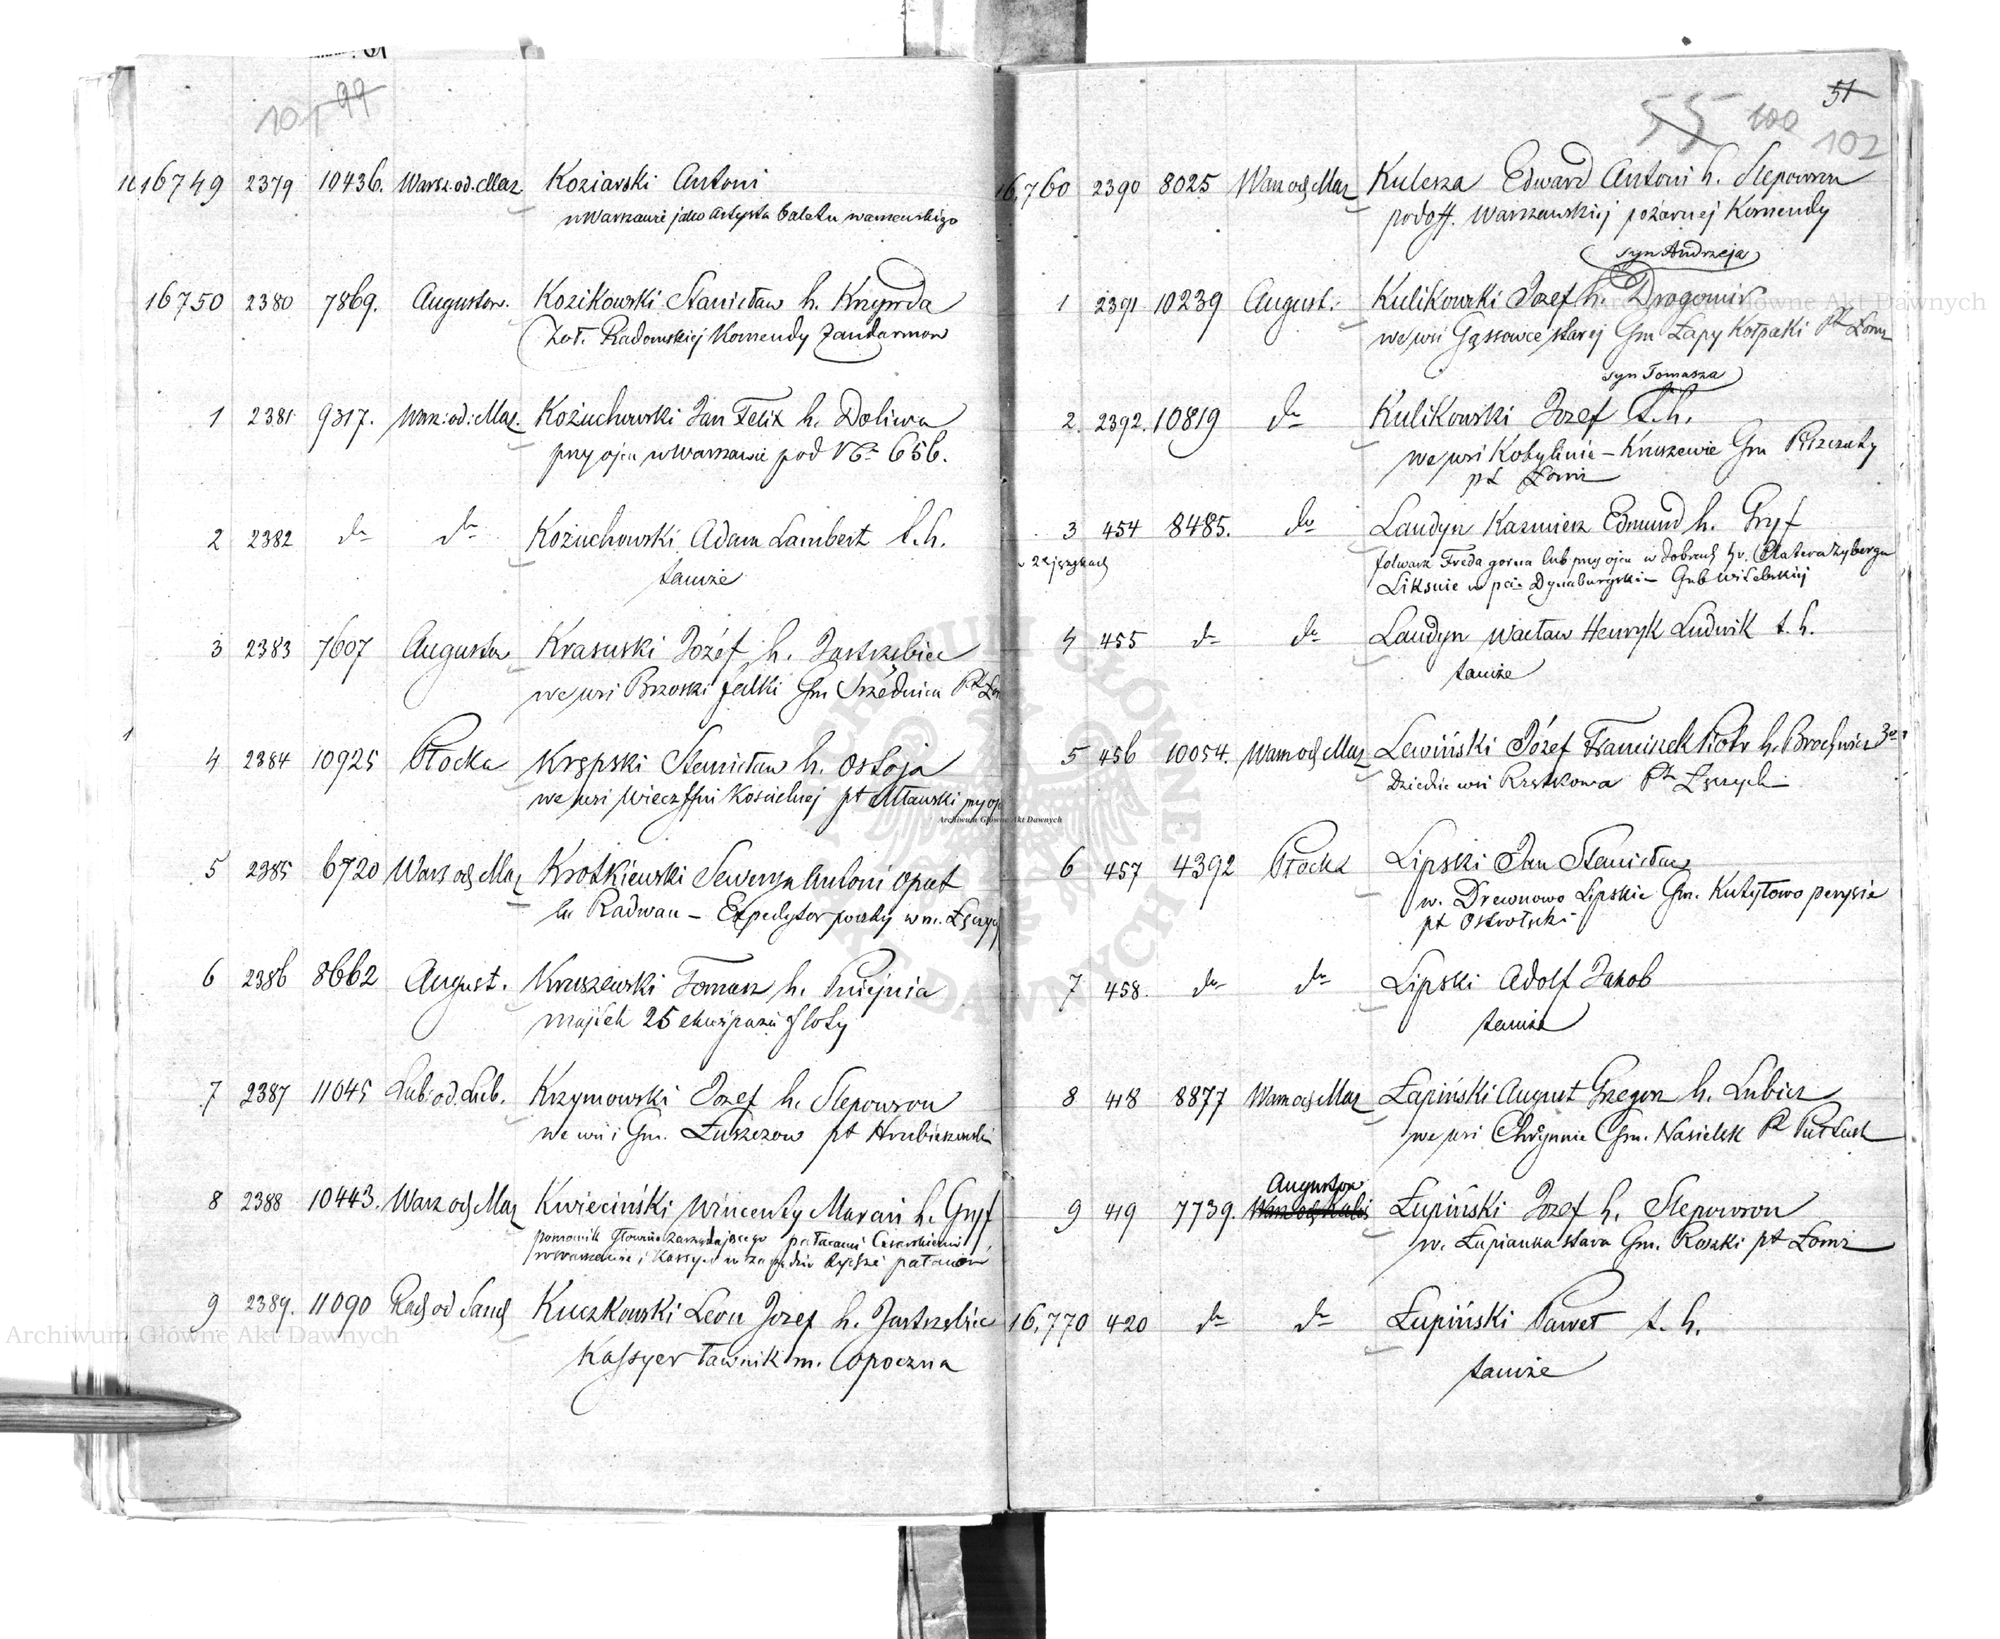 101 99
16749 2379 10436. Warsz. od. Maz Koziarski Antoni
w Warszawie jako Artysta baletu warszawskiego
16750 2380 7869. Augustow. Kozikowski Stanisław h. Krzywda
Żoł. Radomskiej Komendy Żandarmow
1 2381 9317. Warsz: od: Maz. Kożuchowski Jan Felix h. Doliwa
przy ojcu w Warszawie pod No 656.
2 2382 do do Kożuchowski Adam Lambert t.h.
tamże
3 2383 7607 Augustow Krasuski Józef h. Jastrzębiec
we wsi Brzoski Gm
4 2384 10925 Płocka Krępski Stanisław h. Ostoja
we wsi Wieczffni Kościelnej pt Mławski przy oj
5 2385 6720 Warsz od Maz Krotkiewski Seweryn Antoni Opat
h. Radwan – Expedytor poczty w m. Łęczy
6 2386 8662 August. Kruszewski Tomasz h. Pniejnia
majtek 25 ekwipażu floty
7 2387 11045 Lub: od. Lub. Krzymowski Jozef h. Slepowron
we wsi i Gm. Łuszczow pt Hrubieszowski
8 2388 10443. Warsz od Maz Kwieciński Wincenty Maran h. Gryf
pomocnik Głownie zarządzającego pałacami Cesarskiemi
w Warszawie i Kassyer w zarządzie tychże pałacow
9 2389. 11090 Rad od Sand Kuczkowski Leon Jozef h. Jastrzebiec
Kassyer Ławnik m. Opoczna
51
55 100 102
16,760 2390 8025 Warsz od Maz Kulesza Edward Antoni h. Slepowron
podoff. Warszawskiej pożarnej Komendy
syn Andrzeja
1 2391 10239 August: Kulikowski Jozef h. Drogomir
we wsi Gąssowce starej Gm Łapy Kołpaki Pt Łomz
syn Tomasza
2. 2392. 10819 do Kulikowski Jozef t.h.
we wsi Kobylinie – Kruszewie Gm Piszczaty
pt Łomz
3 454 8485. do Laudyn Kazmierz Edmund h. Gryf
w 2ch językach folwark Freda gorna lub przy ojcu w dobrach hr. Platera Zyberga
Liksnie w pcie Dynaburgskim Gub witebskiej
4 455 do do Laudyn Wacław Henryk Ludwik t.h.
tamże
5 456 10054. Warsz od Maz Lewiński Józef Franciszek Piotr h. Brochwicz 3o
Dziedzic wsi Rzstkowa Pt Łęczycki
6 457 4392 Płocka Lipski Jan Stanisław
w. Drewnowo Lipskie Gm. Kutyłowo perysie
pt Ostrołęcki
7 458. do do Lipski Adolf Jakob
tamże
8 418 8877 Warsz od Maz Łapiński August Grzegorz h. Lubicz
we wsi Chrcynnie Gm. Nasielsk Pt Pułtusk
Augustow
9 419 7739. Warsz od Kalis Łupiński Jozef h. Slepowron
w. Łupianka stara Gm. Roszki pt Łomz
16,770 420 do do Łupiński Paweł t.h.
tamże
Archiwum Główne Akt Dawnych
Archiwum Główne Akt Dawnych
Archiwum Główne Akt Dawnych
ARCHIWUM GŁÓWNE AKT DAWNYCH